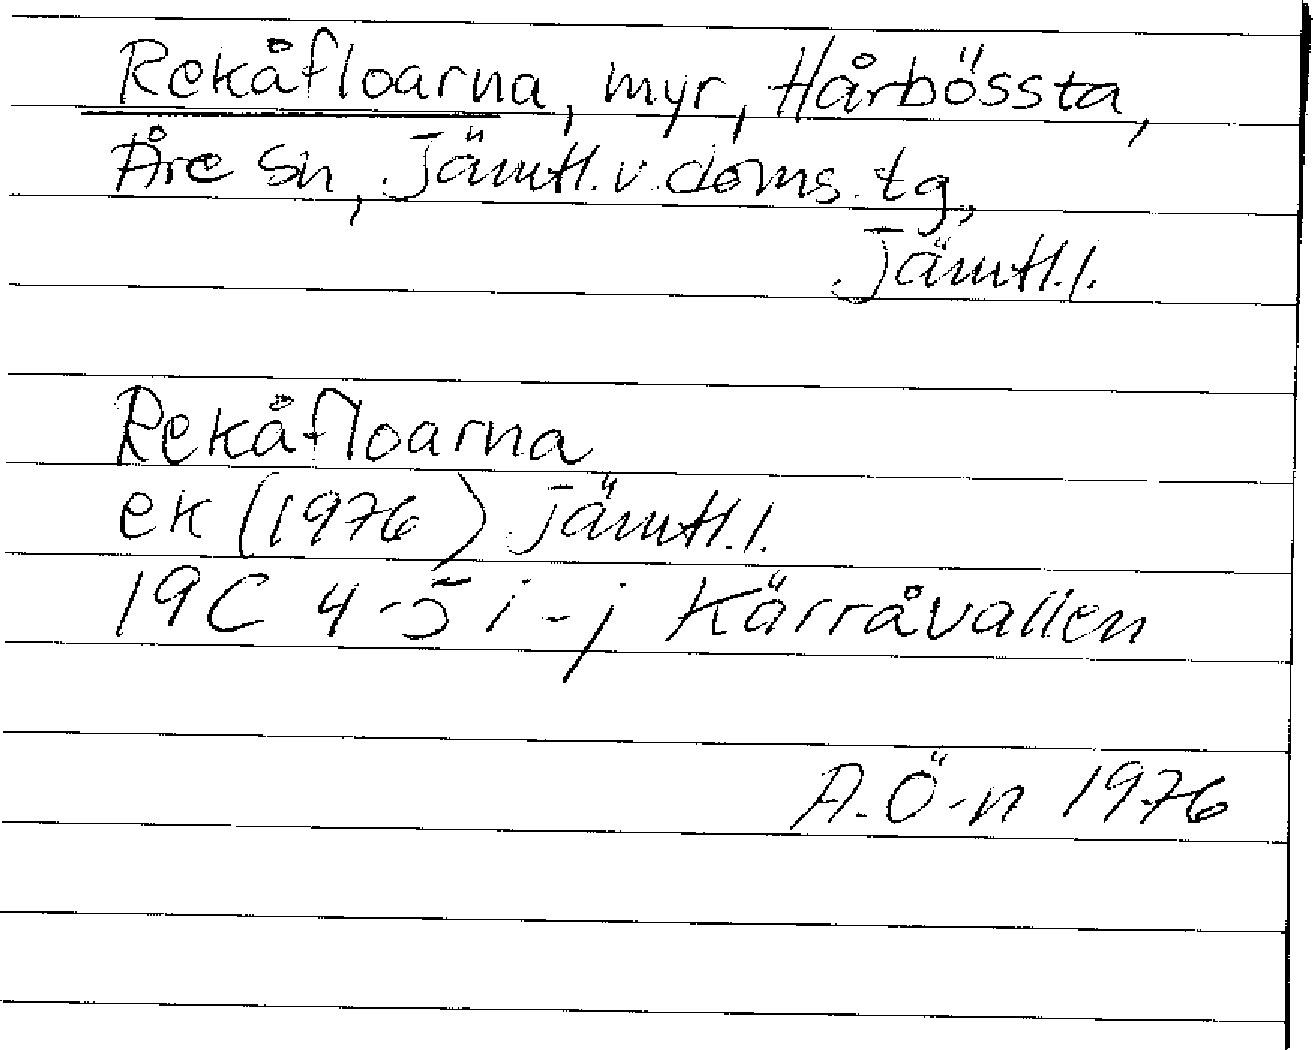 Rekåfloarna, myr, Hårbössta,
Åre sn, Jämtl. v. doms. tg,
Jämtl. l.
Rekåfloarna
ek (1976) Jämtl. l.
19C 4-5 i-j Kärråvallen
A. Ö-n 1976